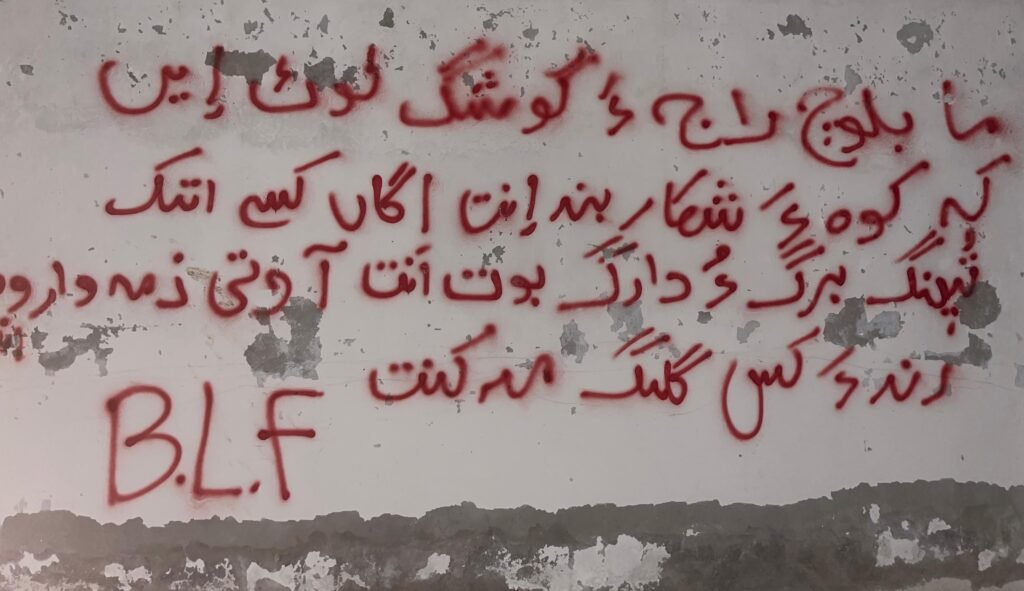 ما بلوچ راج ءَ گوشگ لوٹ اِیں
کہ کوہ ءَ شکار بند اِنت اگاں کسے اتک
ٹپنگ برگ ءُ دارگ بوت اَنت آ وتی ذمہ دار وت
اِنت
رند ءَ کس گلگ مہ کنت
B.L.F